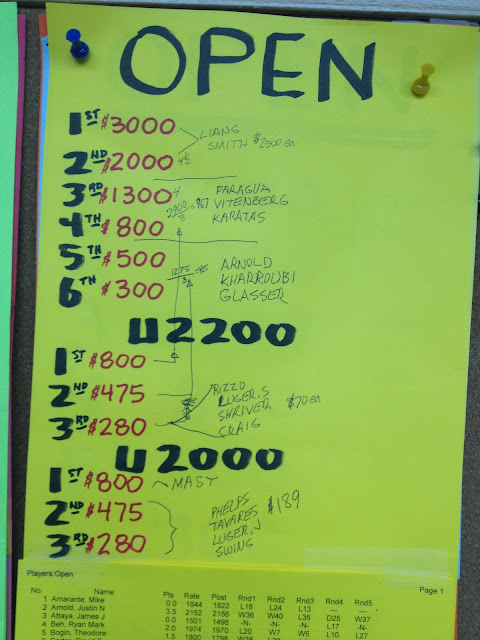 OPEN
1ST $3000
LIANG
SMITH $2500 EA
2ND $2000 4½
3RD $1300 4
PARAGUA
2900/3 = 967 VITENBERG
KARATAS
4TH $800
5TH $500
ARNOLD
1275/3
KHARROUBI
6TH $300
GLASSER
U2200
1ST $800
2ND $475
RIZZO
LUGER, S
SHRIVER $70 EA
3RD $280
CRAIG
U2000
1ST $800 MAST
2ND $475
PHELPS $189
TAVARES
LUGER, J
3RD $280
SWING
Players:Open Page 1
No. Name Pts Rate Post Rnd1 Rnd2 Rnd3 Rnd4 Rnd5
1 Amarante, Mike 0.0 1844 1822 L18 L24 L13 --- ---
2 Arnold, Justin N 3.5 2152 2156 W36 W40 L35 D25 W37
3 Attaya, James J 0.0 1501 1498 -N- -N- -N- L17 -N-
4 Beh, Ryan Mark 2.0 1974 1970 L20 W7 W5 L10 L27
5 Bogin, Theodore 1.5 1800 1798